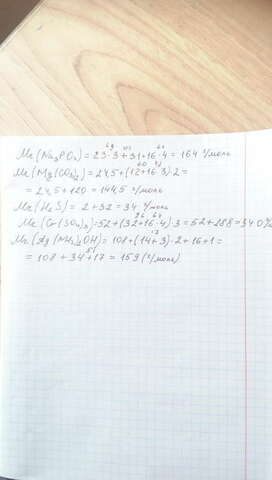 Mr(Na₃PO₄) = 23·3 + 31 + 16·4 = 164 г/моль
Mr(Mg(CO₃)₂ = 24,5 + (12 + 16·3)·2 =
= 24,5 + 120 = 144,5 г/моль
Mr(H₂S) = 2 + 32 = 34 г/моль
Mr(Cr(SO₄)₃) = 52 + (32 + 16·4)·3 = 52 + 288 = 340
Mr(Ag(NH₃)₂OH) = 108 + (14 + 3)·2 + 16 + 1 =
= 108 + 34 + 17 = 159 (г/моль)